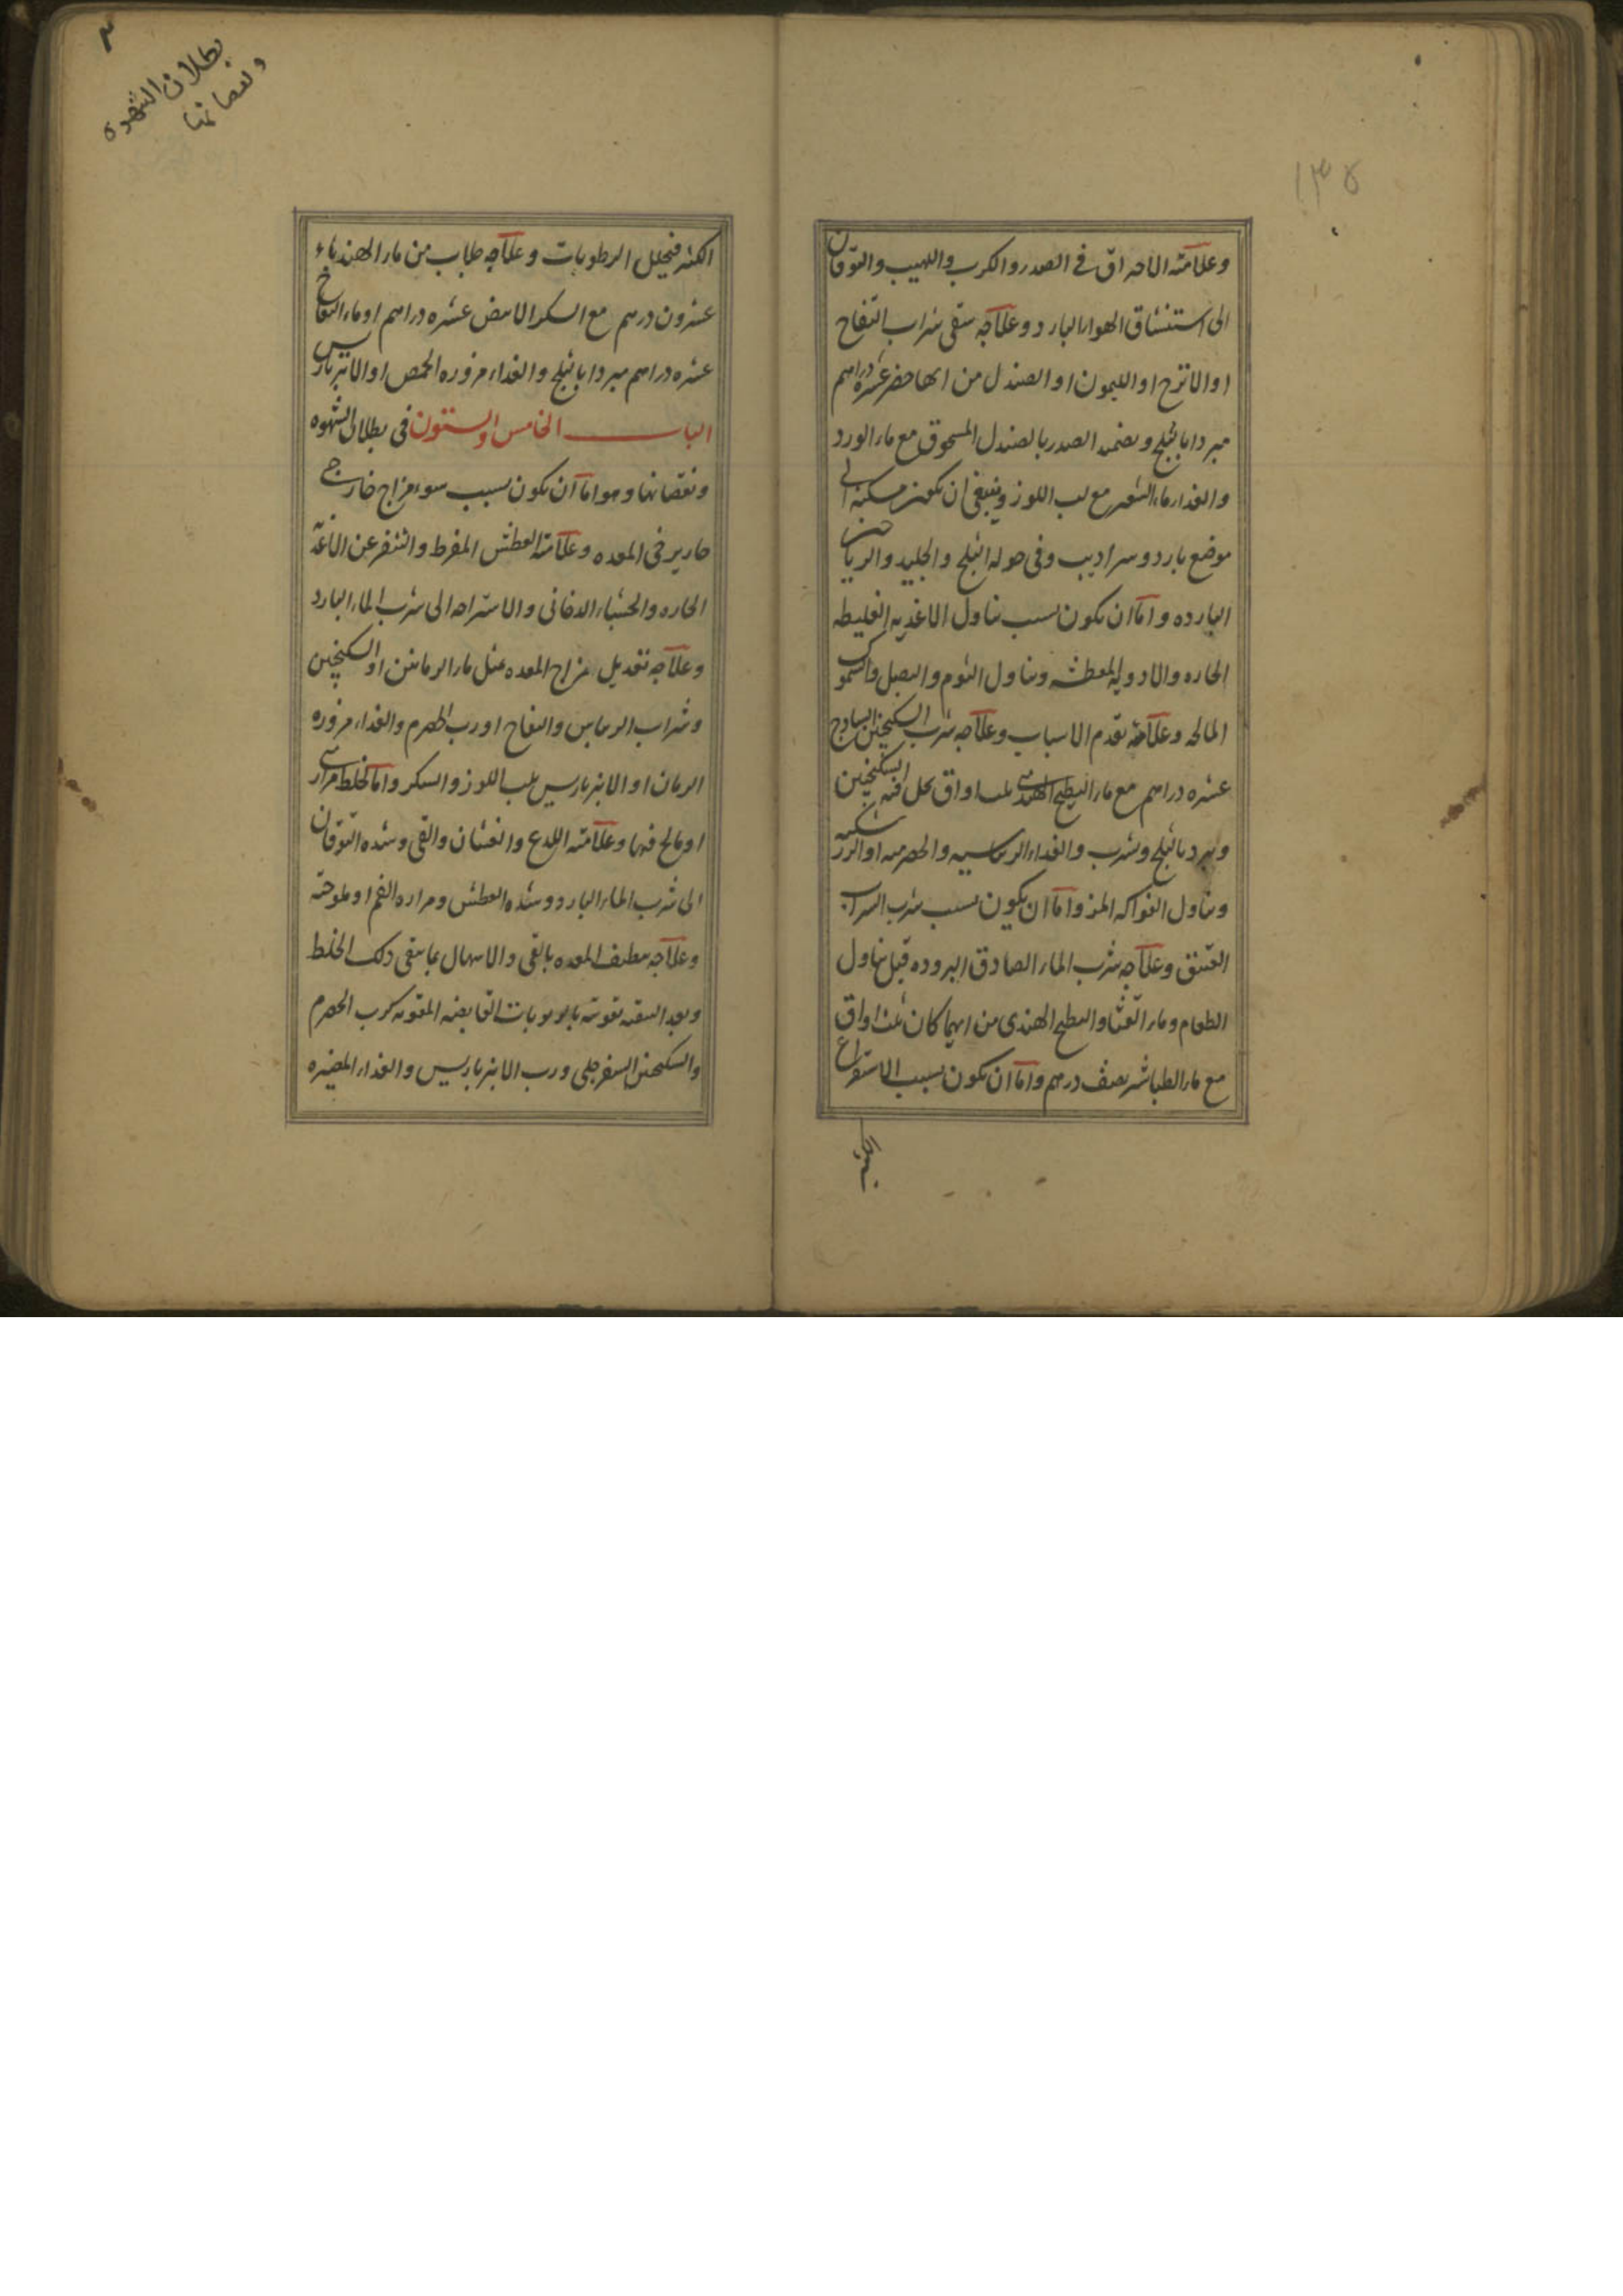 ١٣٥
وعلامته الاحتراق في الصدر والكرب واللهيب والتوقان
الى استنشاق الهواء البارد وعلاجه سقى شراب التفاح
او الاترج او الليمون او الصندل من ايها حضر عشره دراهم
مبردا بالثلج ويضمد الصدر بالصندل المسحوق مع ماء الورد
والغذاء ماء الشعير مع لب اللوز وينبغي ان يكون مسكنه الى
موضع بارد وسراديب وفي حوله الثلج والجليد والرياحين
البارده واما ان يكون بسبب تناول الاغذيه الغليظه
الحاره والادويه المعطشه وتناول الثوم والبصل والسموك
المالحه وعلامته تقدم الاسباب وعلاجه شرب السكنجبين الساذج
عشره دراهم مع ماء البطيخ الهندي ثلث اواق يحل فيه السكنجبين
ويبرد بالثلج ويشرب والغذاء الريباسيه والحصرميه او الزرشكيه
وتناول الفواكه المز واما ان يكون بسبب شرب الشراب
العتيق وعلاجه شرب الماء الصادق البروده قبل تناول
الطعام وماء القثا والبطيخ الهندي من ايهما كان ثلث اواق
مع ماء الطباشير نصف درهم واما ان يكون بسبب الاستفراغ
الكثير
بطلان الشهوه
ونقصانها
الكثير فتحلل الرطوبات وعلاجه جلاب من ماء الهندباء
عشرون درهم مع السكر الابيض عشره دراهم او ماء التفاح
عشره دراهم مبردا بالثلج والغذاء مزوره الحمص او الانبرباريس
الباب الخامس والستون في بطلان الشهوه
ونقصانها وهو اما ان يكون بسبب سوء مزاج خارج
حار يرى في المعده وعلامته العطش المفرط والتنفر عن الاغذيه
الحاره والجشاء الدخاني والاستراحه الى شرب الماء البارد
وعلاجه تعديل مزاج المعده بمثل ماء الرمانين او السكنجبين
وشراب الريباس والتفاح او رب الحصرم والغذاء مزوره
الرمان او الانبرباريس بلب اللوز والسكر واما لخلط مراري
او مالح فيها وعلامته اللذع والغثيان والقي وشده التوقان
الى شرب الماء البارد وشده العطش ومراره الفم او ملوحته
وعلاجه تنظيف المعده بالقي والاسهال بما ينقي ذلك الخلط
وبعد التنقيه تقويته بالربوبات القابضه المقويه كرب الحصرم
والسكنجبين السفرجلي ورب الانبرباريس والغذاء المضيره